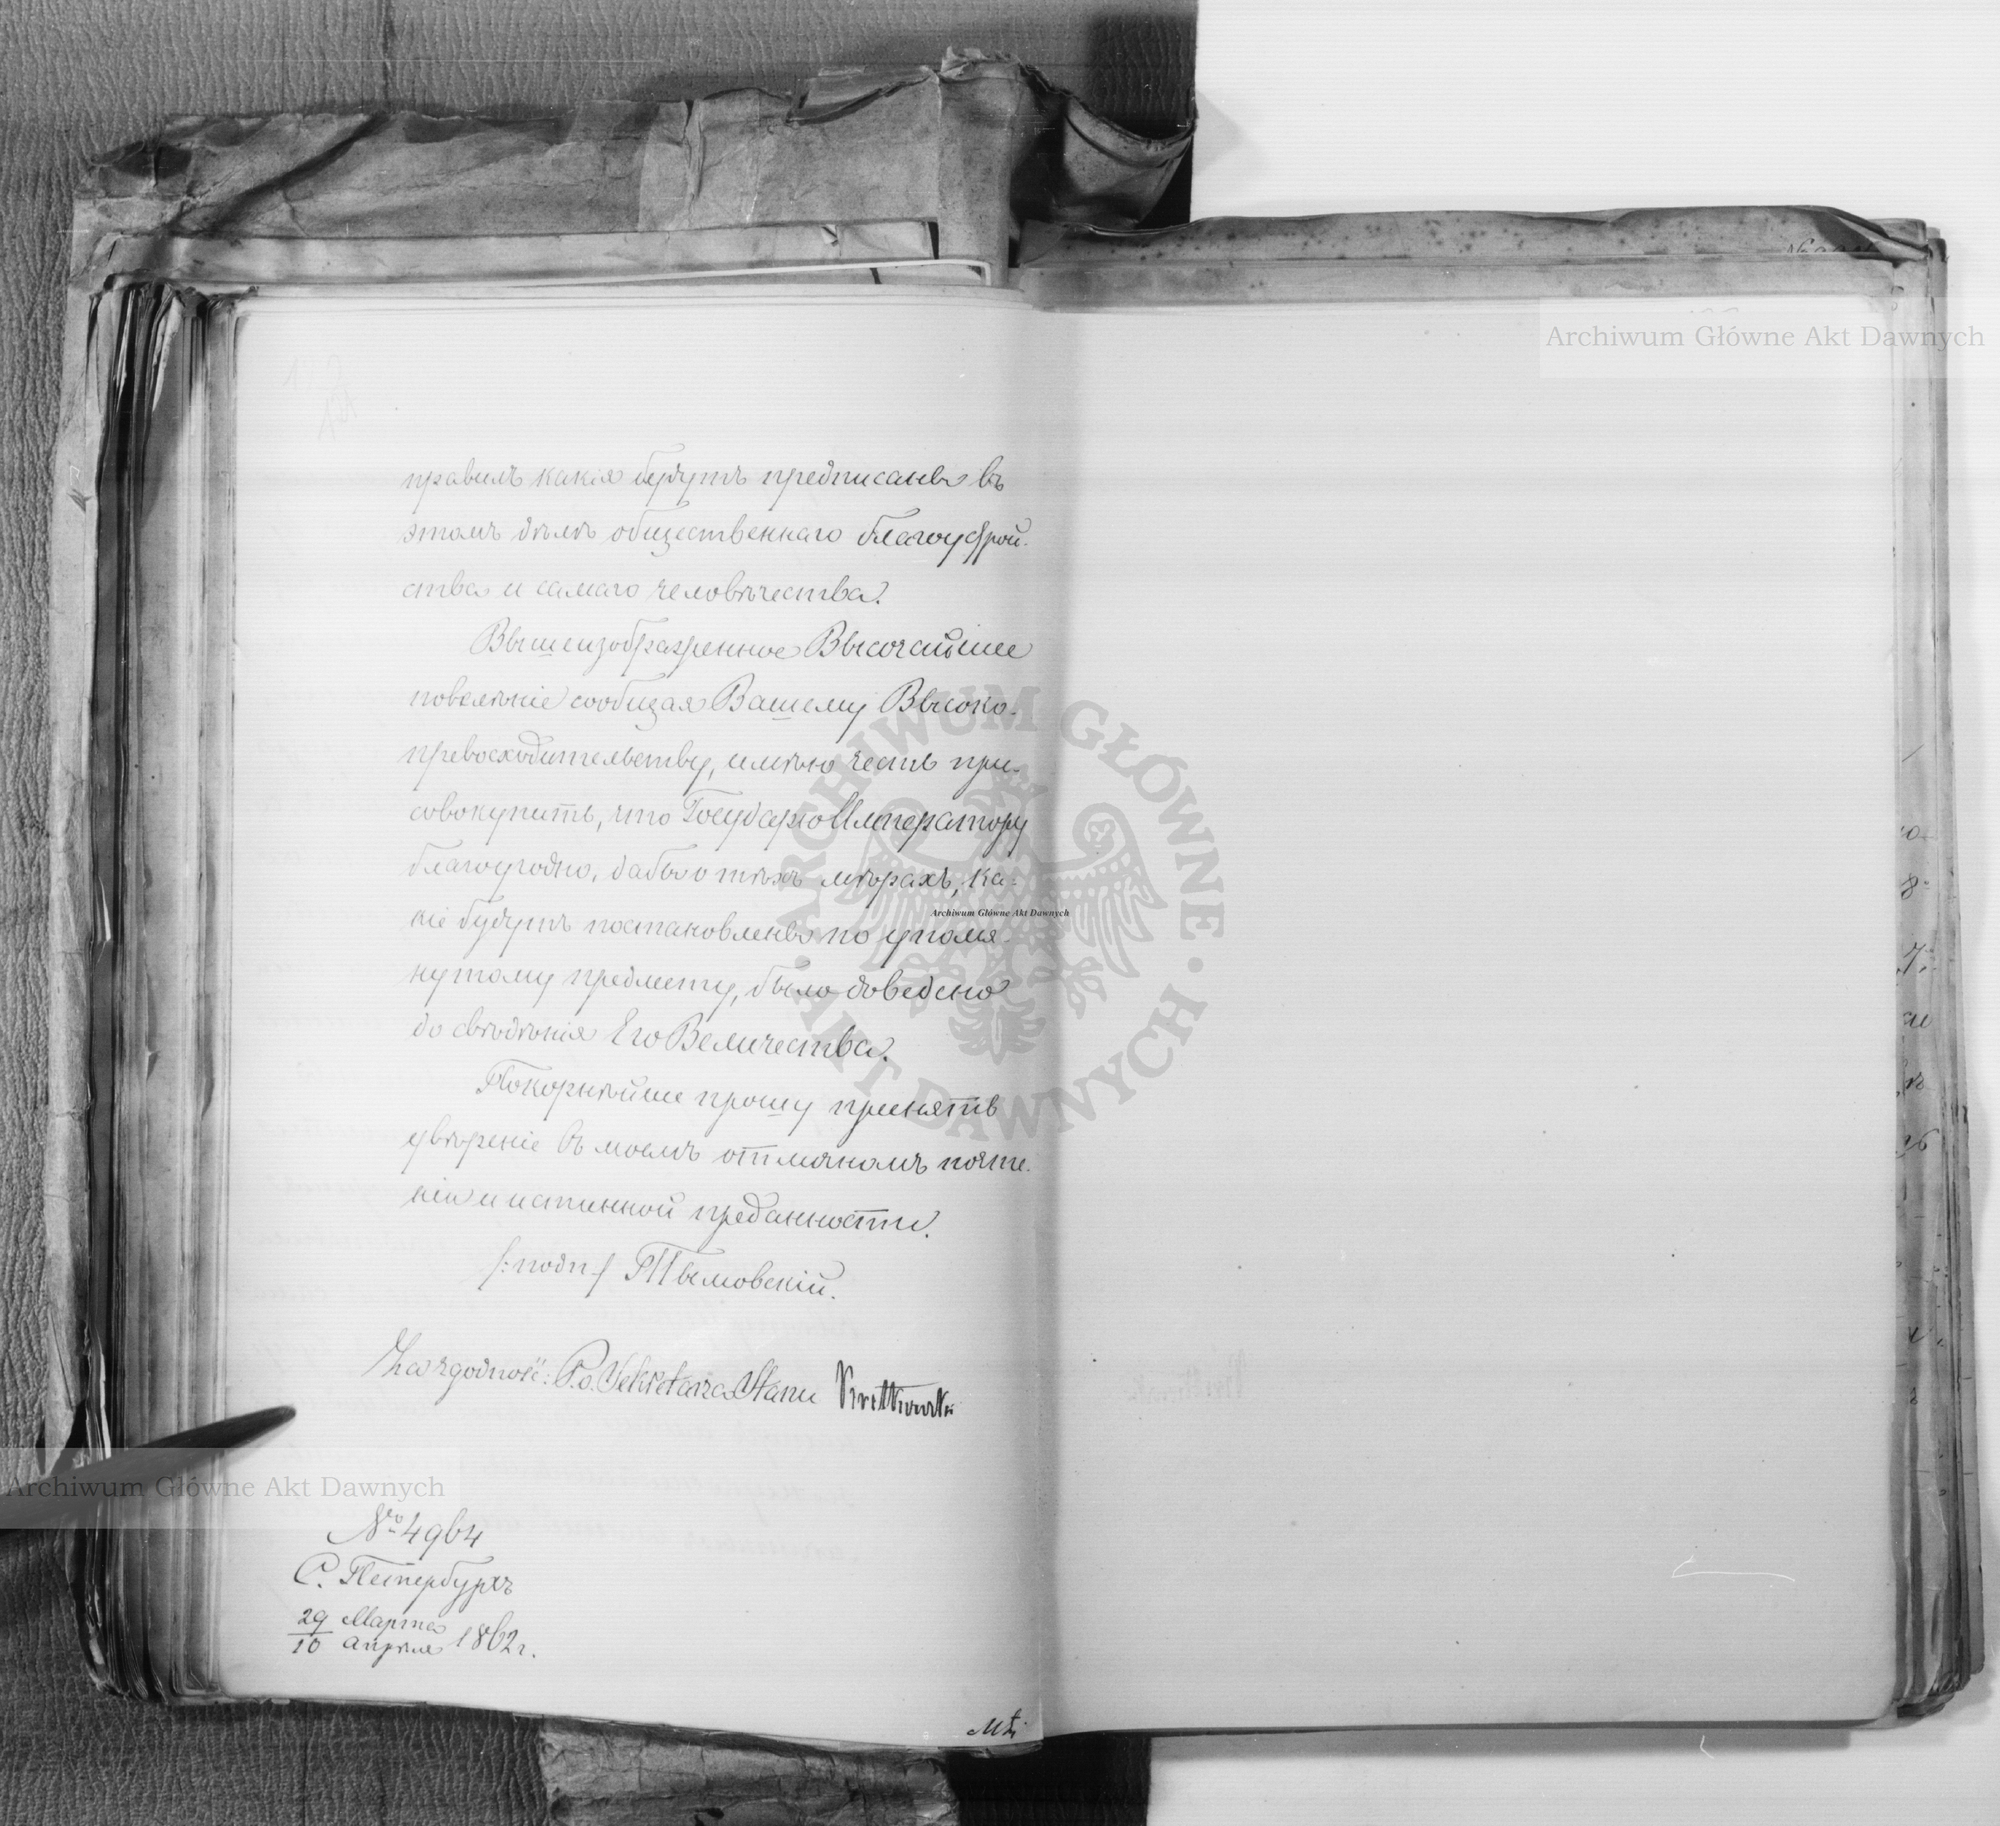 правилъ какія будутъ предписаны въ
этомъ дѣлѣ общественнаго благоустрой-
ства и самаго человѣчества.
Вышеизображенное Высочайшее
повелѣніе сообщая Вашему Высоко-
превосходительству, имѣю честь при-
совокупить, что Государю Императору
благоугодно, дабы о тѣхъ мѣрахъ, ка-
кіе будутъ постановлены по упомя-
нутому предмету, было доведено
до свѣдѣнія Его Величества.
Покорнѣйше прошу принять
увѣреніе въ моемъ отличномъ почте-
ніи и истинной преданности.
/:подп/ Тымовскій.
Za zgodność: P.o. Sekretarza Stanu
№ 4964
С. Петербургъ
29 Марта
10 Апрѣля 1862 г.
Archiwum Główne Akt Dawnych
Archiwum Główne Akt Dawnych
Archiwum Główne Akt Dawnych
ARCHIWUM GŁÓWNE · AKT DAWNYCH ·